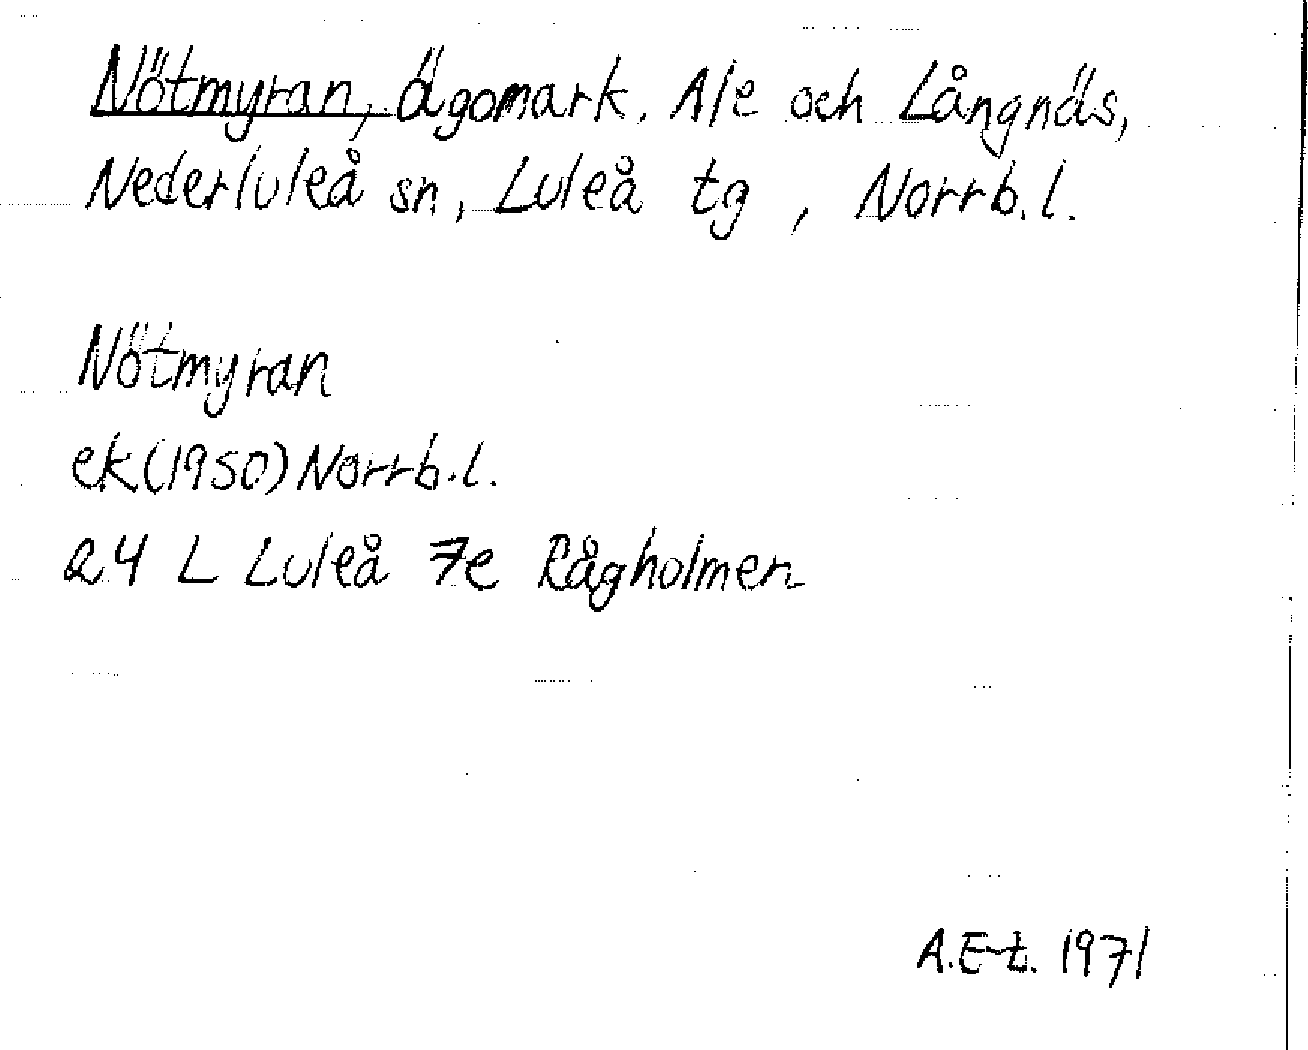 Nötmyran, ägomark. Ale och Långnäs,
Nederluleå sn, Luleå tg , Norrb.l.
Nötmyran
ek(1950) Norrb.l.
24 L Luleå 7e Rågholmen
A.E-t. 1971